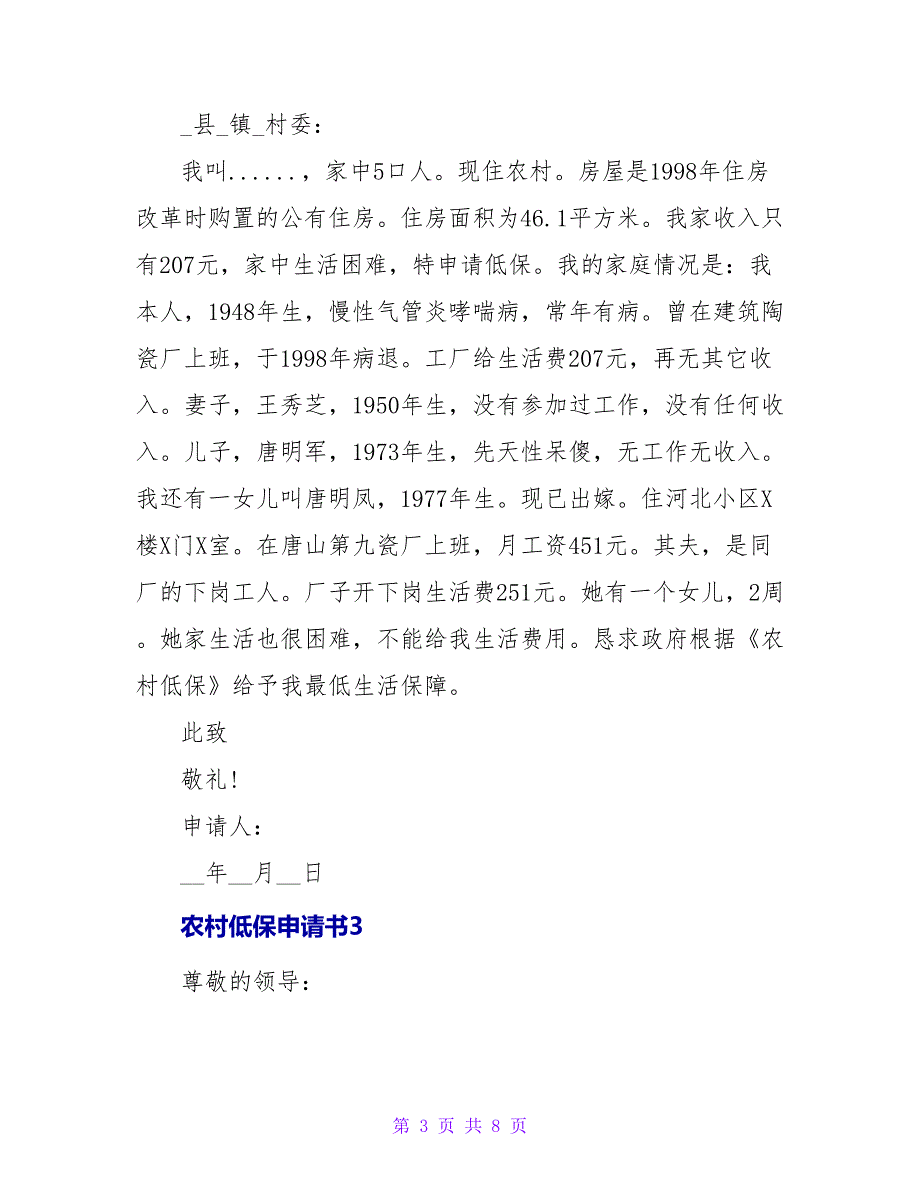 _县_镇_村委：
我叫......，家中5口人。现住农村。房屋是1998年住房
改革时购置的公有住房。住房面积为46.1平方米。我家收入只
有207元，家中生活困难，特申请低保。我的家庭情况是：我
本人，1948年生，慢性气管炎哮喘病，常年有病。曾在建筑陶
瓷厂上班，于1998年病退。工厂给生活费207元，再无其它收
入。妻子，王秀芝，1950年生，没有参加过工作，没有任何收
入。儿子，唐明军，1973年生，先天性呆傻，无工作无收入。
我还有一女儿叫唐明凤，1977年生。现已出嫁。住河北小区X
楼X门X室。在唐山第九瓷厂上班，月工资451元。其夫，是同
厂的下岗工人。厂子开下岗生活费251元。她有一个女儿，2周
。她家生活也很困难，不能给我生活费用。恳求政府根据《农
村低保》给予我最低生活保障。
此致
敬礼！
申请人：
__年__月__日
农村低保申请书3
尊敬的领导：
第 3 页 共 8 页